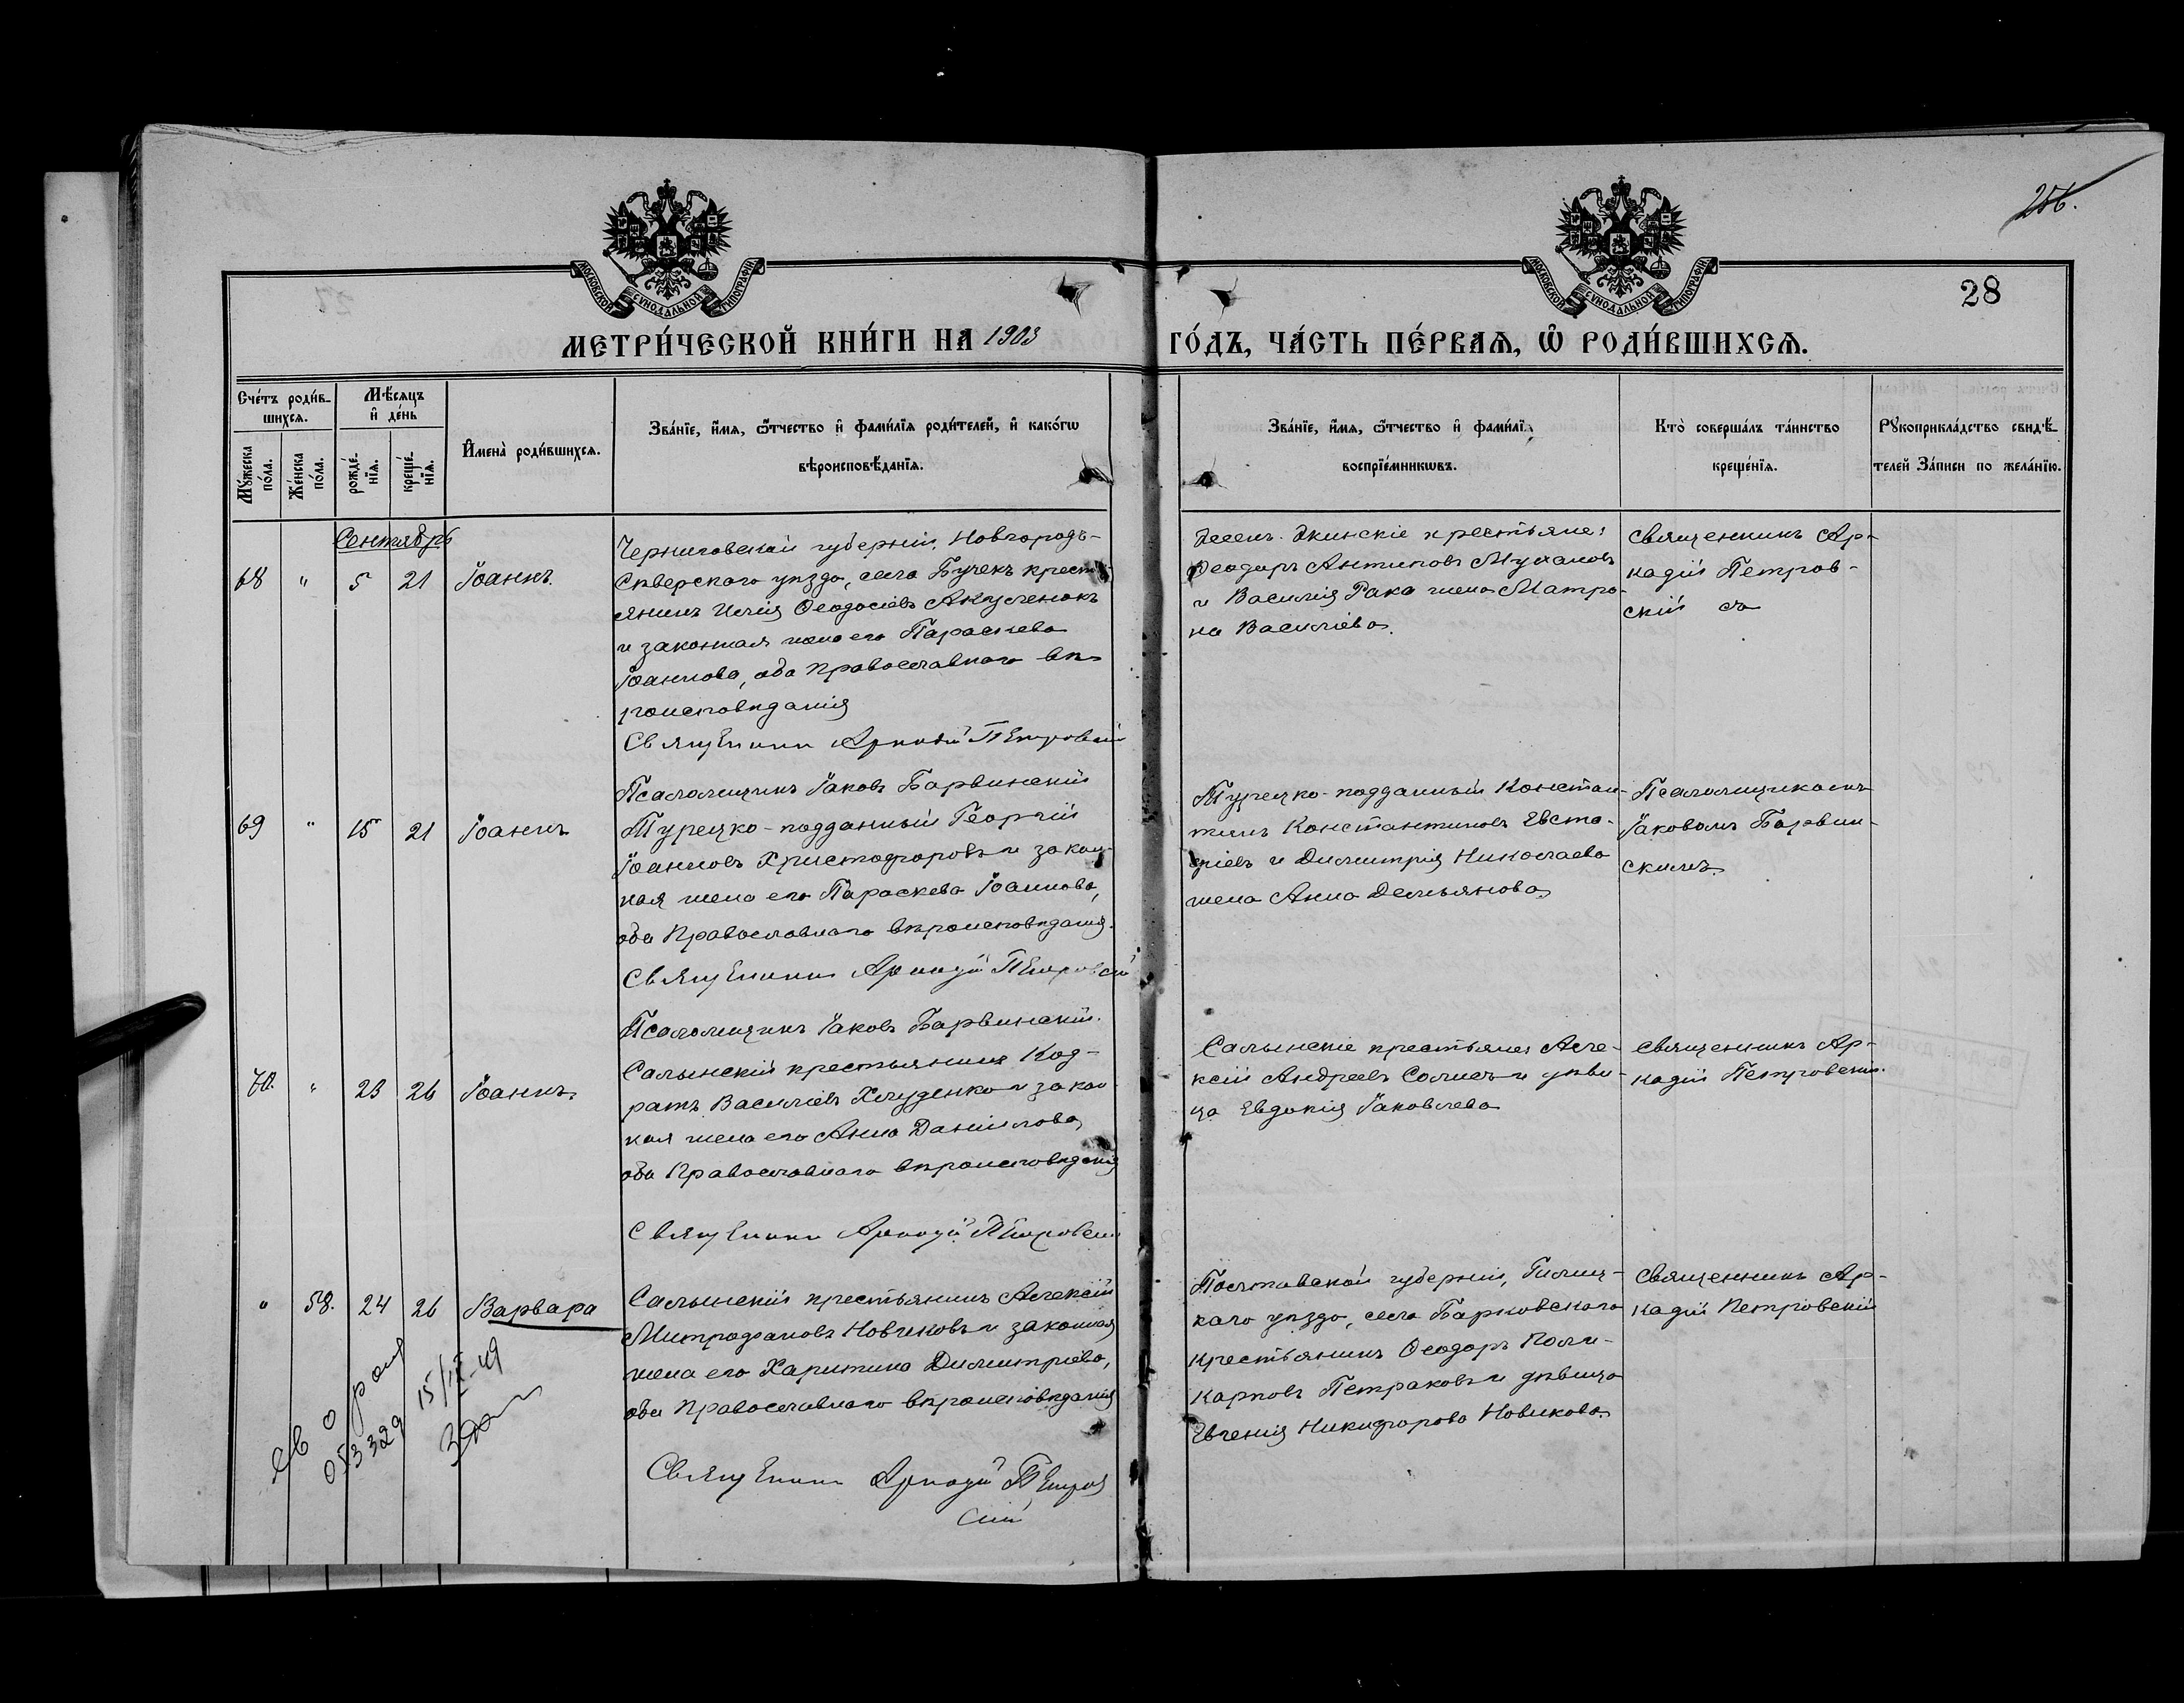 256.
28
МОСКОВСКОЙ СѴНОДАЛЬНОЙ ТИПОГРАФІИ
МОСКОВСКОЙ СѴНОДАЛЬНОЙ ТИПОГРАФІИ
МЕТРИ́ЧЕСКОЙ КНИ́ГИ НА 1903
ГО́ДЪ, ЧА́СТЬ ПЕ́РВАѦ, Ѡ҆ РОДИ́ВШИХСѦ.
Сче́тъ роди́в-
шихсѧ.
Мꙋ́жеска
по́ла.
Же́нска
по́ла.
Мѣ́сѧцъ
и҆ де́нь
рожде́-
нїѧ.
креще́-
нїѧ.
И҆мена̀ роди́вшихсѧ.
Зва́нїе, и҆́мѧ, ѻ҆́тчество и҆ фами́лїѧ роди́телей, и҆ како́гѡ
вѣроисповѣ́данїѧ.
Зва́нїе, и҆́мѧ, ѻ҆́тчество и҆ фами́лїѧ
воспрїе́мникѡвъ.
Кто̀ соверша́лъ та́инство
креще́нїѧ.
Рꙋкоприкла́дство свидѣ́-
телей За́писи по жела́нїю.
Сентябрь
68 " 5 21 Іоаннъ.
Черниговской губерніи, Новгородъ-
Сѣверского уѣзда, села Бучекъ крест-
янинъ Илія Ѳеодосіевъ Акуленокъ
и законная жена его Параскева
Іоаннова, оба Православнаго вѣ-
роисповѣданія
Священникъ Аркадій Петровскій
Псаломщикъ Іаковъ Барвинскій
крестьяне:
Ѳеодоръ Антиповъ
и Василія Рака жена Матро-
на Василіева.
Священникъ Ар-
кадій Петров-
скій съ
69 " 15 21 Іоаннъ
Турецко-подданный Георгій
Іоанновъ Христофоровъ и закон-
ная жена его Параскева Іоаннова,
оба Православнаго вѣроисповѣданія.
Священникъ Аркадій Петровскій
Псаломщикъ Іаковъ Барвинскій.
Турецко-подданный Констан-
тинъ Константиновъ Евста-
фіевъ и Димитрія Николаева
жена Анна Демьянова
Псаломщикомъ
Іаковомъ Барвин-
скимъ
70. " 23 26 Іоаннъ.
Салынскій крестьянинъ Код-
ратъ Василіевъ Хлуденко и закон-
ная жена его Анна Даніилова,
оба Православнаго вѣроисповѣданія
Священникъ Аркадій Петровскій
Салынскіе крестьяне: Але-
ксій Андреевъ и дѣви-
ца Евдокія Іаковлева
Священникъ Ар-
кадій Петровскій.
" 58. 24 26 Варвара
Салынскій крестьянинъ Алексій
Митрофановъ Новиковъ и законная
жена его Харитина Димитріева,
оба Православнаго вѣроисповѣданія
Священникъ Аркадій Петров
скій
Полтавской губерніи, Гадяц-
каго уѣзда, села Барковскаго
крестьянинъ Ѳеодоръ Поли-
карповъ Петраковъ и дѣвица
Евгенія Никифорова Новикова.
Священникъ Ар-
кадій Петровскій
053329
15/IX-49